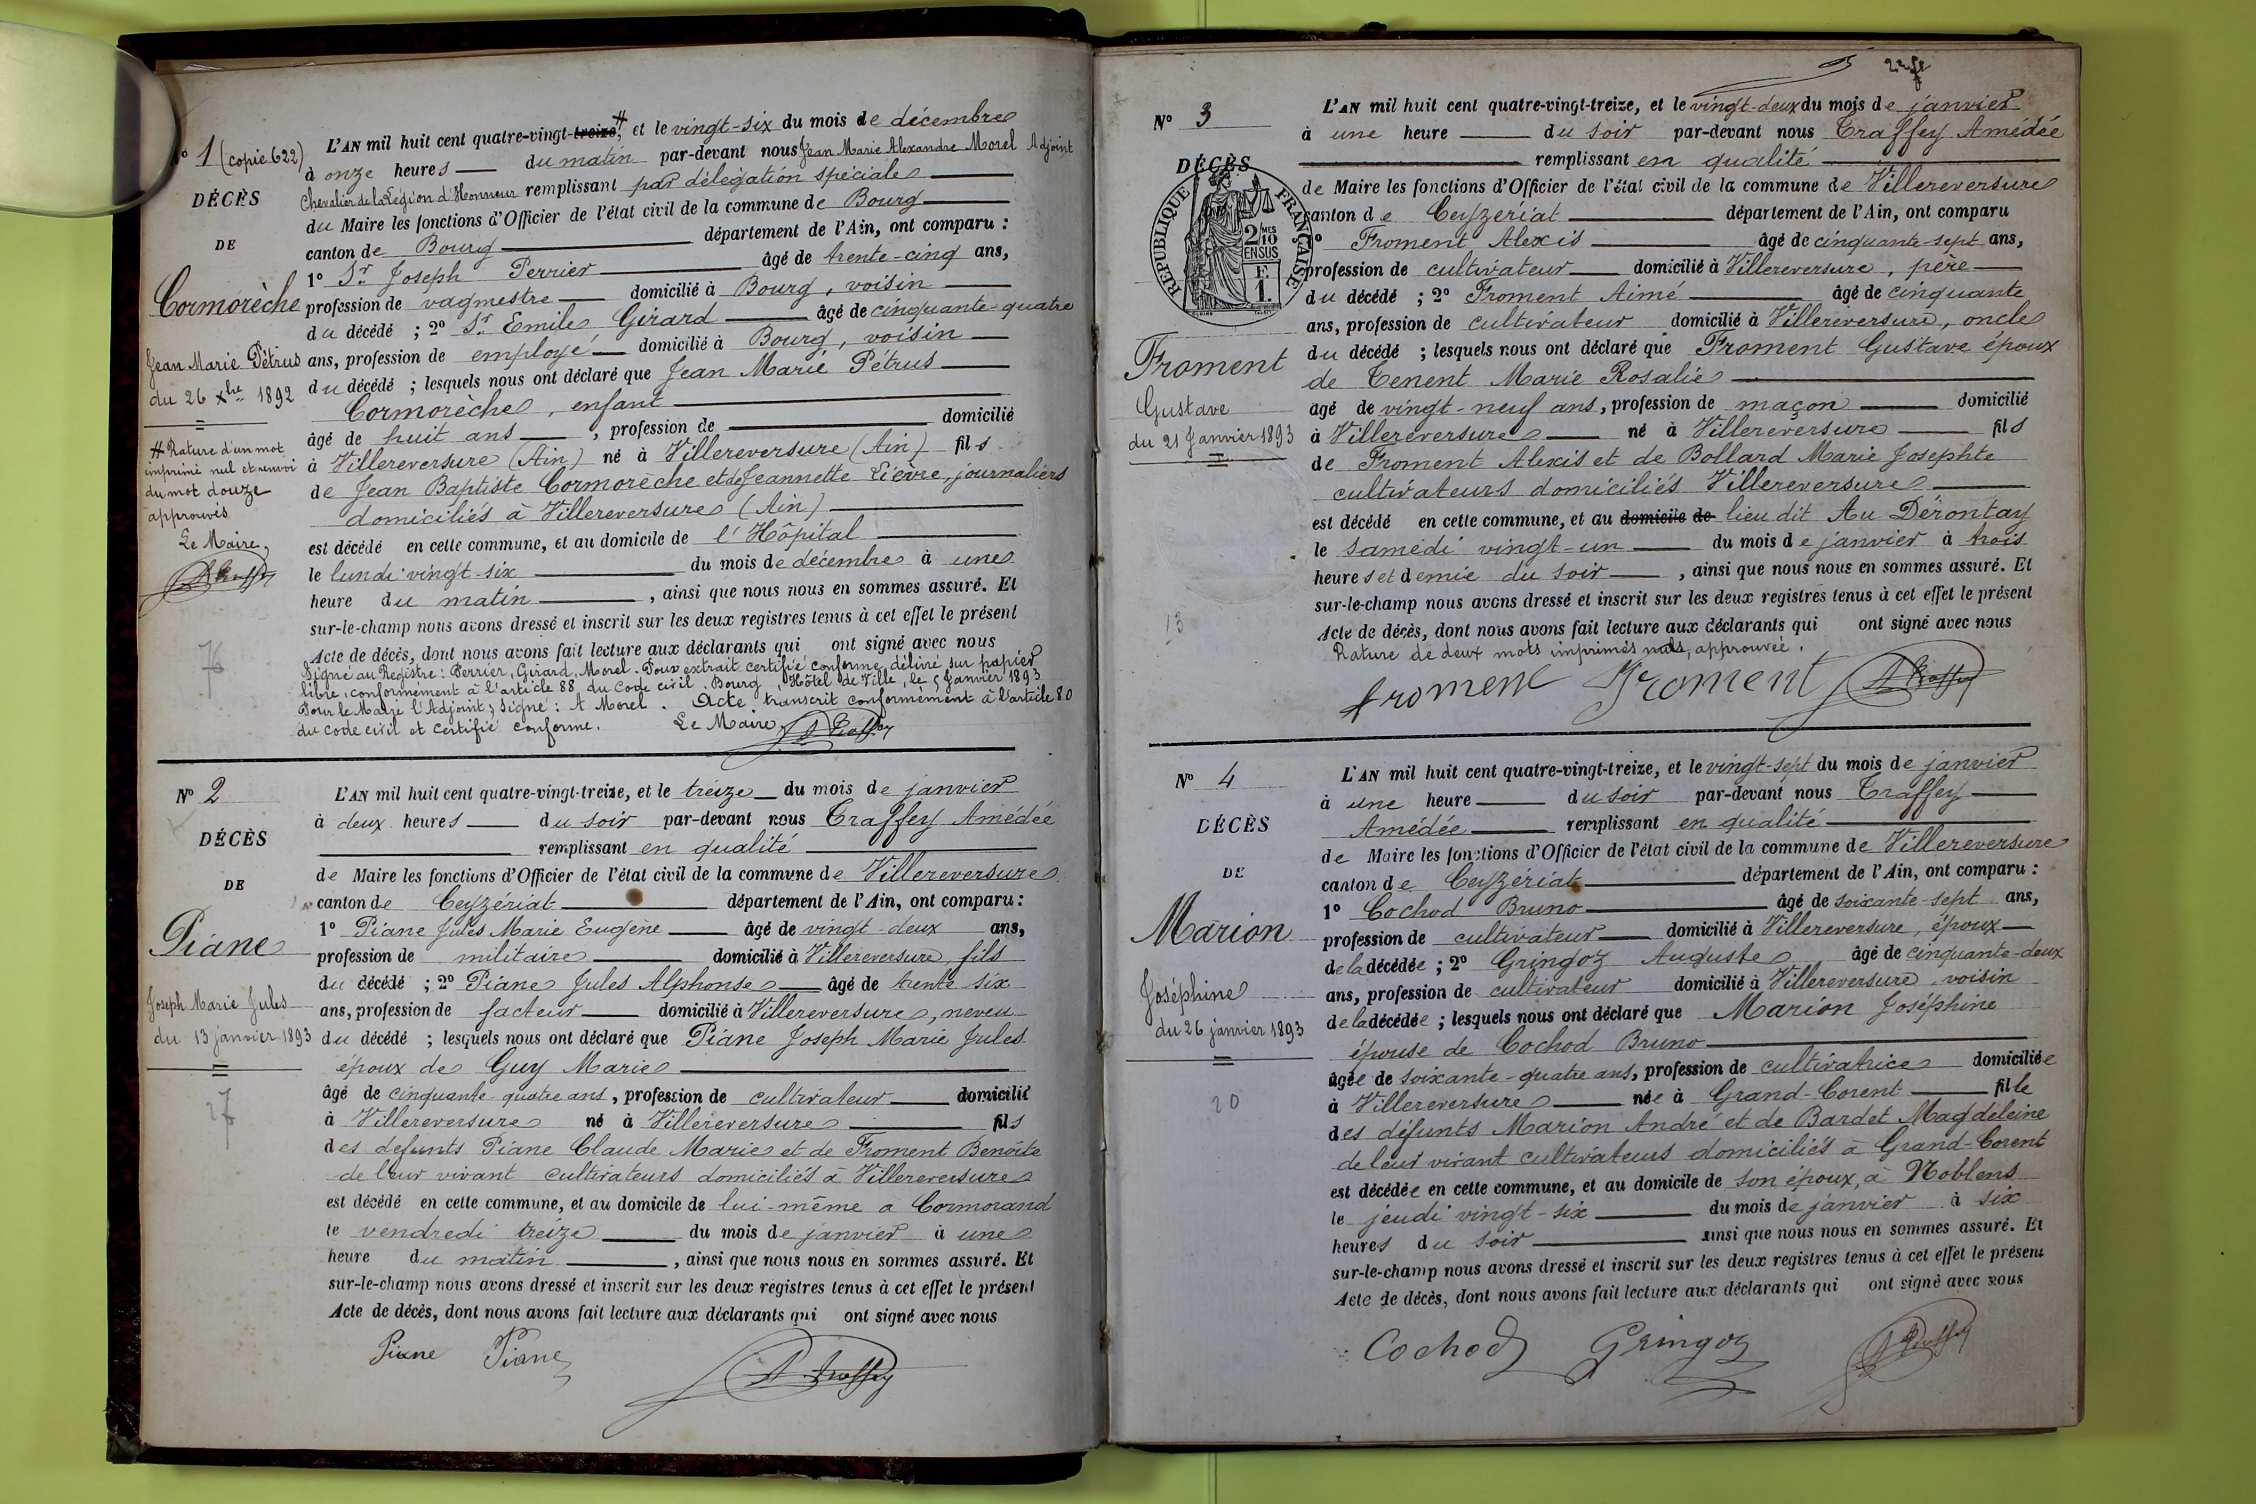 N° 1 (copie 622)
DÉCÈS
DE
Cormorèche
Jean Marie Pétrus
du 26 Xbre 1892
# Rature d'un mot
imprimé nul et renvoi
du mot douze
approuvés
Le Maire,
L'AN mil huit cent quatre-vingt-treize #, et le vingt-six du mois de décembre
à onze heures du matin par-devant nous Jean Marie Alexandre Morel Adjoint
Chevalier de la Légion d'Honneur remplissant par délégation spéciale
du Maire les fonctions d'Officier de l'état civil de la commune de Bourg
canton de Bourg département de l'Ain, ont comparu :
1° Sr Joseph Perrier âgé de trente-cinq ans,
profession de vagmestre domicilié à Bourg, voisin
du décédé ; 2° Sr Emile Girard âgé de cinquante-quatre
ans, profession de employé domicilié à Bourg, voisin
du décédé ; lesquels nous ont déclaré que Jean Marie Pétrus
Cormorèche, enfant
âgé de huit ans, profession de domicilié
à Villereversure (Ain) né à Villereversure (Ain) fils
de Jean Baptiste Cormorèche et de Jeannette Lièvre, journaliers
domiciliés à Villereversure (Ain)
est décédé en cette commune, et au domicile de l'Hôpital
le lundi vingt-six du mois de décembre à une
heure du matin, ainsi que nous nous en sommes assuré. Et
sur-le-champ nous avons dressé et inscrit sur les deux registres tenus à cet effet le présent
Acte de décès, dont nous avons fait lecture aux déclarants qui ont signé avec nous
Signé au Registre : Perrier, Girard, Morel. Pour extrait certifié conforme délivré sur papier
libre, conformément à l'article 88 du Code civil. Bourg, Hôtel de Ville, le 5 Janvier 1893
Pour le Maire l'Adjoint, Signé : A Morel. Acte transcrit conformément à l'article 80
du code civil et certifié conforme. Le Maire,
76
N° 2
DÉCÈS
DE
Piane
Joseph Marie Jules
du 13 janvier 1893
27
L'AN mil huit cent quatre-vingt-treize, et le treize du mois de janvier
à deux heures du soir par-devant nous Traffey Amédée
remplissant en qualité
de Maire les fonctions d'Officier de l'état civil de la commune de Villereversure
canton de Ceyzériat département de l'Ain, ont comparu :
1° Piane Jules Marie Eugène âgé de vingt-deux ans,
profession de militaire domicilié à Villereversure, fils
du décédé ; 2° Piane Jules Alphonse âgé de trente six
ans, profession de facteur domicilié à Villereversure, neveu
du décédé ; lesquels nous ont déclaré que Piane Joseph Marie Jules
époux de Guy Marie
âgé de cinquante quatre ans, profession de cultivateur domicilié
à Villereversure né à Villereversure fils
des defunts Piane Claude Marie et de Froment Benoîte
de leur vivant cultivateurs domiciliés à Villereversure
est décédé en cette commune, et au domicile de lui-même à Cormorand
le vendredi treize du mois de janvier à une
heure du matin, ainsi que nous nous en sommes assuré. Et
sur-le-champ nous avons dressé et inscrit sur les deux registres tenus à cet effet le présent
Acte de décès, dont nous avons fait lecture aux déclarants qui ont signé avec nous
Piane Piane A Traffey
N° 3
DÉCÈS
RÉPUBLIQUE FRANÇAISE
2 MES
10
EN SUS
F.
1.
Froment
Gustave
du 21 Janvier 1893
13
L'AN mil huit cent quatre-vingt-treize, et le vingt-deux du mois de janvier
à une heure du soir par-devant nous Traffey Amédée
remplissant en qualité
de Maire les fonctions d'Officier de l'état civil de la commune de Villereversure
canton de Ceyzériat département de l'Ain, ont comparu
1° Froment Alexis âgé de cinquante-sept ans,
profession de cultivateur domicilié à Villereversure, père
du décédé ; 2° Froment Aimé âgé de cinquante
ans, profession de cultivateur domicilié à Villereversure, oncle
du décédé ; lesquels nous ont déclaré que Froment Gustave époux
de Tenent Marie Rosalie
âgé de vingt-neuf ans, profession de maçon domicilié
à Villereversure né à Villereversure fils
de Froment Alexis et de Bollard Marie Josephte
cultivateurs domiciliés Villereversure
est décédé en cette commune, et au domicile de lieu dit Au Dérontay
le samedi vingt-un du mois de janvier à trois
heures et demie du soir, ainsi que nous nous en sommes assuré. Et
sur-le-champ nous avons dressé et inscrit sur les deux registres tenus à cet effet le présent
Acte de décès, dont nous avons fait lecture aux déclarants qui ont signé avec nous
Rature de deux mots imprimés nuls, approuvée.
froment Froment A Traffey
N° 4
DÉCÈS
DE
Marion
Joséphine
du 26 janvier 1893
20
L'AN mil huit cent quatre-vingt-treize, et le vingt-sept du mois de janvier
à une heure du soir par-devant nous Traffey
Amédée remplissant en qualité
de Maire les fonctions d'Officier de l'état civil de la commune de Villereversure
canton de Ceyzériat département de l'Ain, ont comparu :
1° Cochod Bruno âgé de soixante-sept ans,
profession de cultivateur domicilié à Villereversure, époux
de la décédée ; 2° Gringoz Auguste âgé de cinquante-deux
ans, profession de cultivateur domicilié à Villereversure voisin
de la décédée ; lesquels nous ont déclaré que Marion Joséphine
épouse de Cochod Bruno
âgée de soixante-quatre ans, profession de cultivatrice domiciliée
à Villereversure née à Grand-Corent fille
des défunts Marion André et de Bardet Magdeleine
de leur vivant cultivateurs domiciliés à Grand-Corent
est décédée en cette commune, et au domicile de son époux, à Noblens
le jeudi vingt-six du mois de janvier à six
heures du soir ainsi que nous nous en sommes assuré. Et
sur-le-champ nous avons dressé et inscrit sur les deux registres tenus à cet effet le présent
Acte de décès, dont nous avons fait lecture aux déclarants qui ont signé avec nous
Cochod Gringoz A Traffey